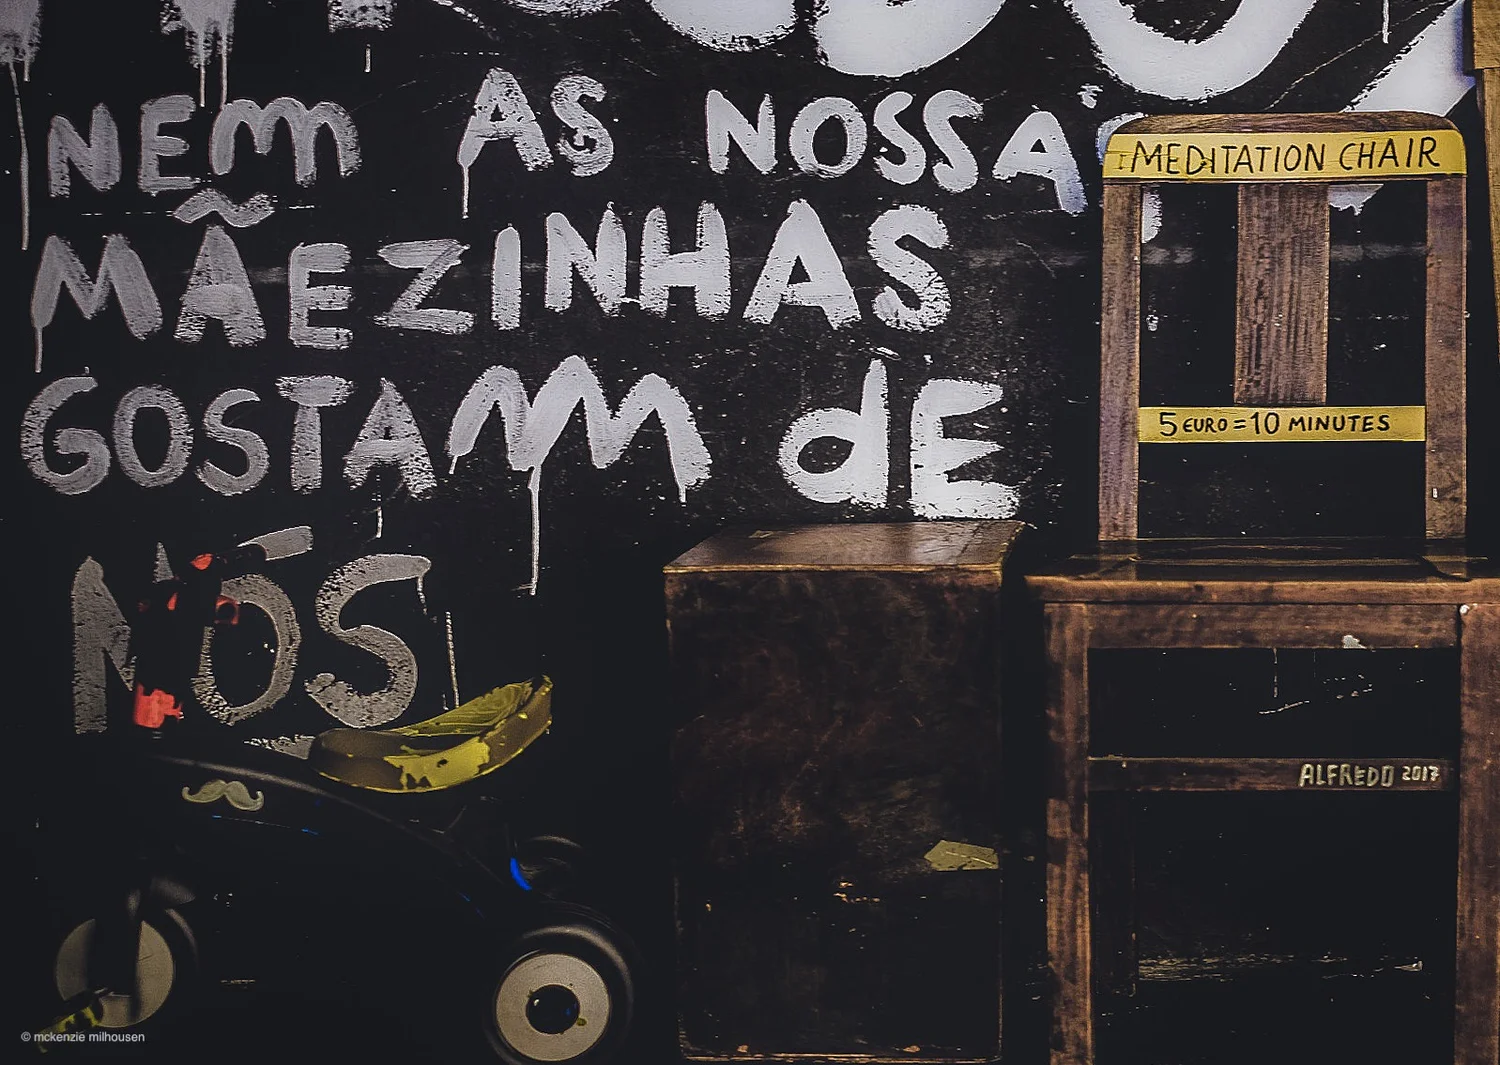 NEM AS NOSSAS
MÃEZINHAS
GOSTAM dE
NÓS
MEDITATION CHAIR
5 EURO = 10 MINUTES
ALFREDO 2017
© mckenzie milhousen